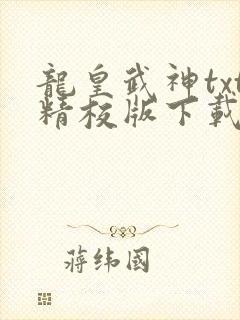 龍皇武神txt
精校版下載
蔣纬國